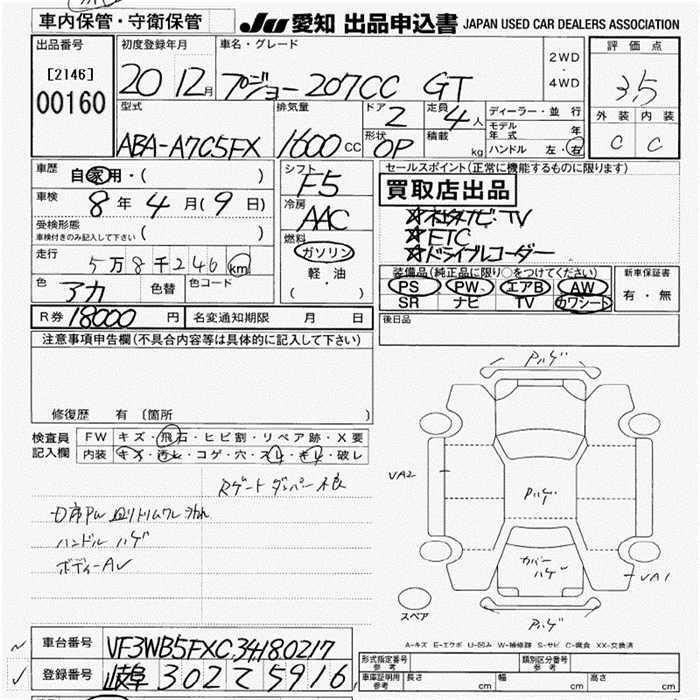 車内保管・守衛保管
JU 愛知 出品申込書 JAPAN USED CAR DEALERS ASSOCIATION
出品番号
[2146]
00160
初度登録年月
20 12月
車名・グレード
プジョー 207CC GT
2WD
・
4WD
評価点
3.5
外装 内装
C C
型式
ABA-A7C5FX
排気量
1600 CC
ドア
2
形状
OP
定員
4人
積載
kg
ディーラー・並行
モデル年式 年
ハンドル 左・右
車歴
自家用・( )
車検
8年4月(9日)
受検形態
車検付きのみ記入して下さい ( )
走行
5万8千246km
色
アカ
色替
色コード
シフト
F5
冷房
AAC
燃料
ガソリン
軽・油
( )
セールスポイント(正常に機能するものに限ります)
買取店出品
☆社外ナビ・TV
☆ETC
☆ドライブレコーダー
装備品(純正品に限り○をつけてください)
PS PW エアB AW
SR ナビ TV カワシート
新車保証書
有・無
R券 18000円
名変通知期限 月 日
後日品
注意事項申告欄(不具合内容等は具体的に記入して下さい)
修復歴 有 〔箇所 〕
検査員記入欄
FW キズ・飛石・ヒビ割・リペア跡・X要
内装 キズ・汚レ・コゲ・穴・スレ・キレ・破レ
Rゲートダンパー不良
ハンドルハゲ
ボディーAU
Pハゲ
VA2
Pハゲ
カバーハゲ
VA1
Pハゲ
スペア
A-キズ E-エクボ U-凹み W-補修跡 S-サビ C-腐食 XX-交換済
車台番号
VF3WB5FXC34180217
登録番号
岐阜 302 て 5916
形式指定番号
参考
類別区分番号
参考
車庫証明用
参考
長さ cm
幅 cm
高さ cm